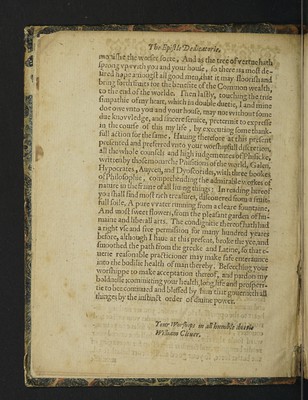 The Epistle Dedicatorie.
you and your house, so there is a most de-
sired hope amongst all good men, that it may florish and
bring forth fruits for the benefite of the Common wealth,
to the end of the worlde. First lastly, touching the true
simpathie of my hart, which in double duetie, I and mine
doe owe vnto you and your house, may not without some
due knowledge, and sincere seruice, pretermit to expresse
in the course of this my life, by executing some thank-
full action for the same. Hauing therefore at this present
presented and preferred vnto your worshipfull discretion,
all the whole counsels and high iudgements of Phisicke,
written by those monarche Phisitions of the world, Galen,
Hypocrates, Auycen, and Dyoscorides, with three bookes
of Philosophie, comprehending the admirable workes of
nature in the frame of all liuing things: In reading herof
you shall find most rich treasures, discouered from a fruit-
full soile, A pure water running from a cleare fountaine,
And most sweet flowers, from the pleasant garden of hu-
maine and liberall arte. The condigne therof hath had
a right vse and free permission for many hundred yeares
before, although I haue at this present, broke the yce, and
smoothed the path from the greeke and Latine, so that e-
uerie reasonable practicioner may make safe enterance
into the bodilie health of man thereby. Beseeching your
worshippe to make acceptation therof, and pardon my
boldnesse, committing your health, long life and prosperi-
tie to bee continued and blessed by him that gouerneth all
thinges by the instinct order of diuine power.
Your Worships in all humble duetie
William Cleuer.